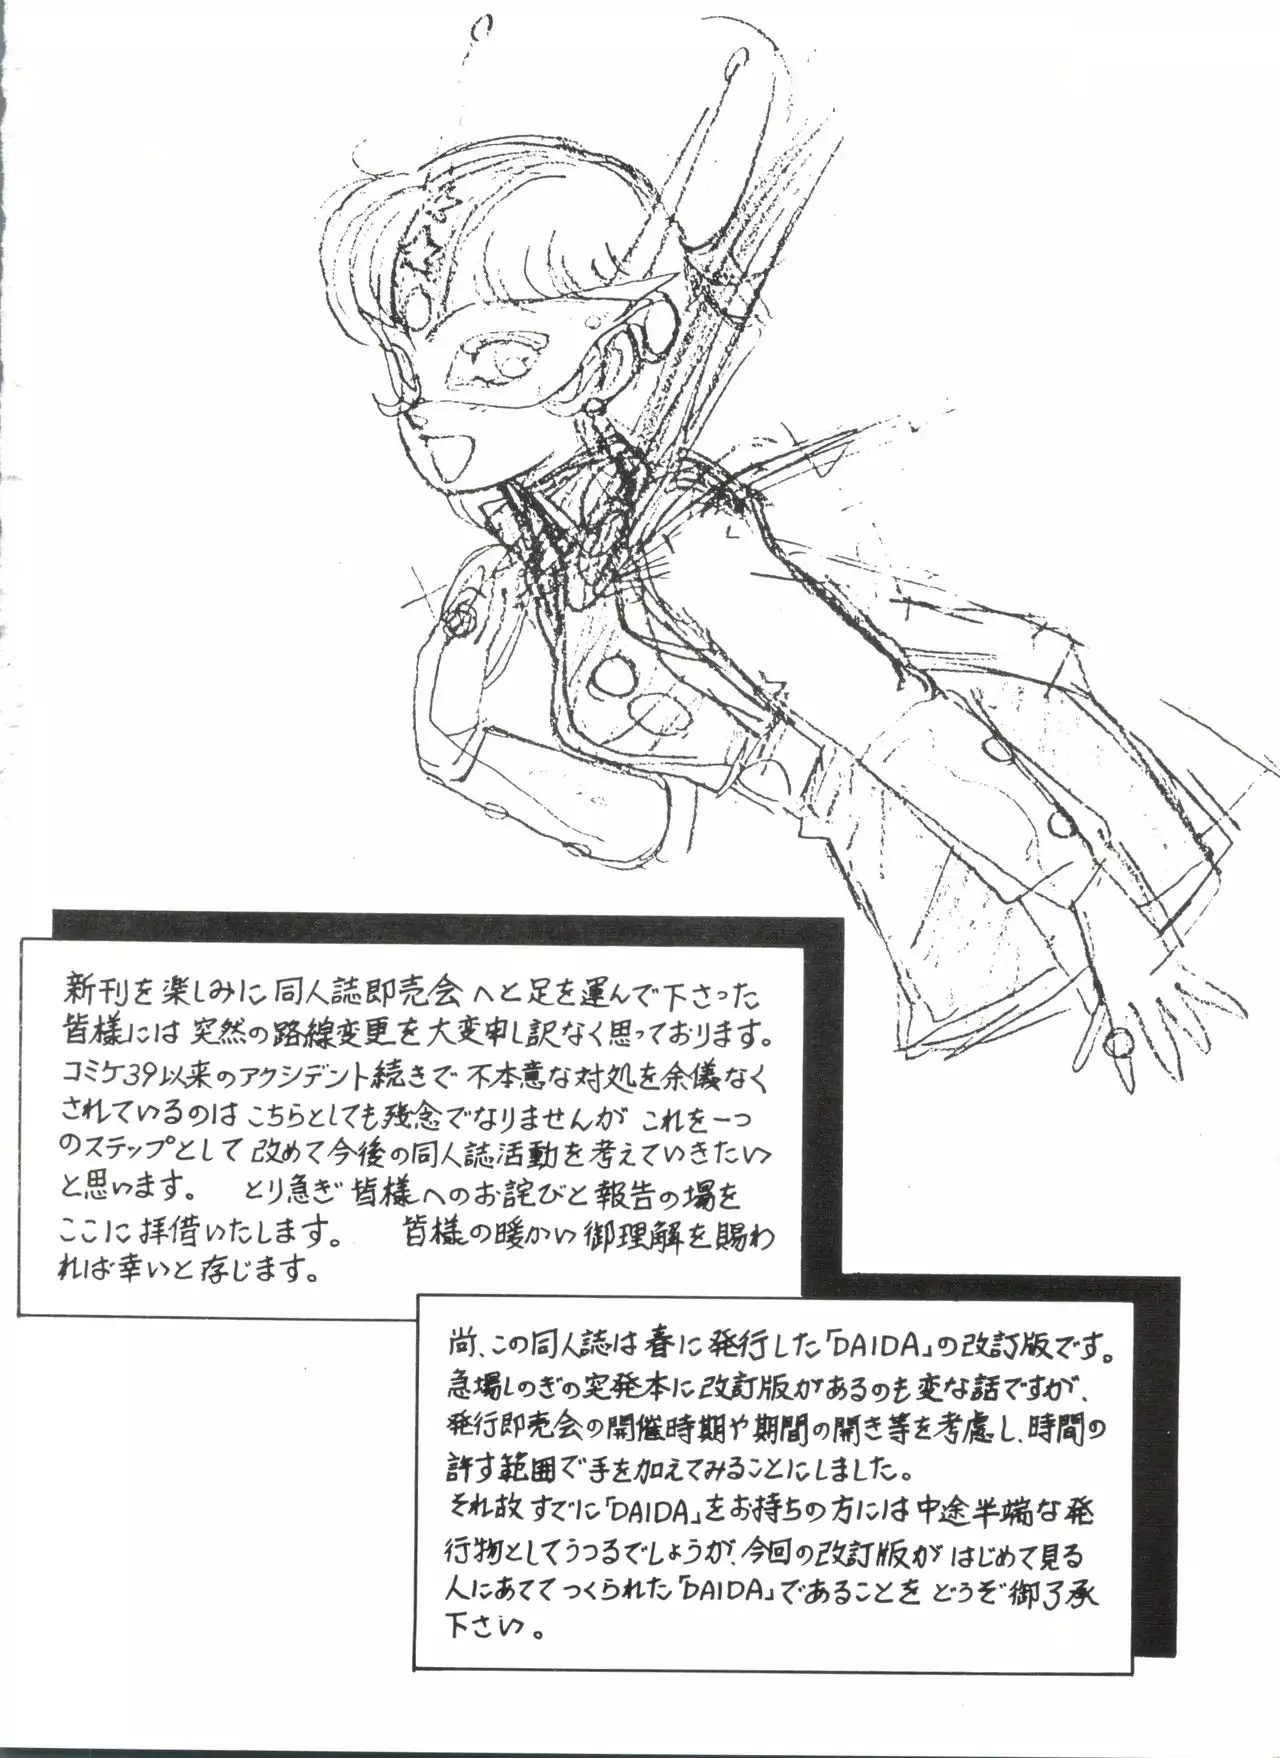 新刊を楽しみに同人誌即売会へと足を運んで下さった
皆様には突然の路線変更を大変申し訳なく思っております。
コミケ39以来のアクシデント続きで不本意な対処を余儀なく
されているのはこちらとしても残念でなりませんがこれを一つ
のステップとして改めて今後の同人誌活動を考えていきたい
と思います。 とり急ぎ皆様へのお詫びと報告の場を
ここに拝借いたします。 皆様の暖かい御理解を賜わ
れば幸いと存じます。
尚、この同人誌は春に発行した「DAIDA」の改訂版です。
急場しのぎの突発本に改訂版があるのも変な話ですが、
発行即売会の開催時期や期間の開き等を考慮し、時間の
許す範囲で手を加えてみることにしました。
それ故すでに「DAIDA」をお持ちの方には中途半端な発
行物としてうつるでしょうが、今回の改訂版がはじめて見る
人にあててつくられた「DAIDA」であることをどうぞ御了承
下さい。